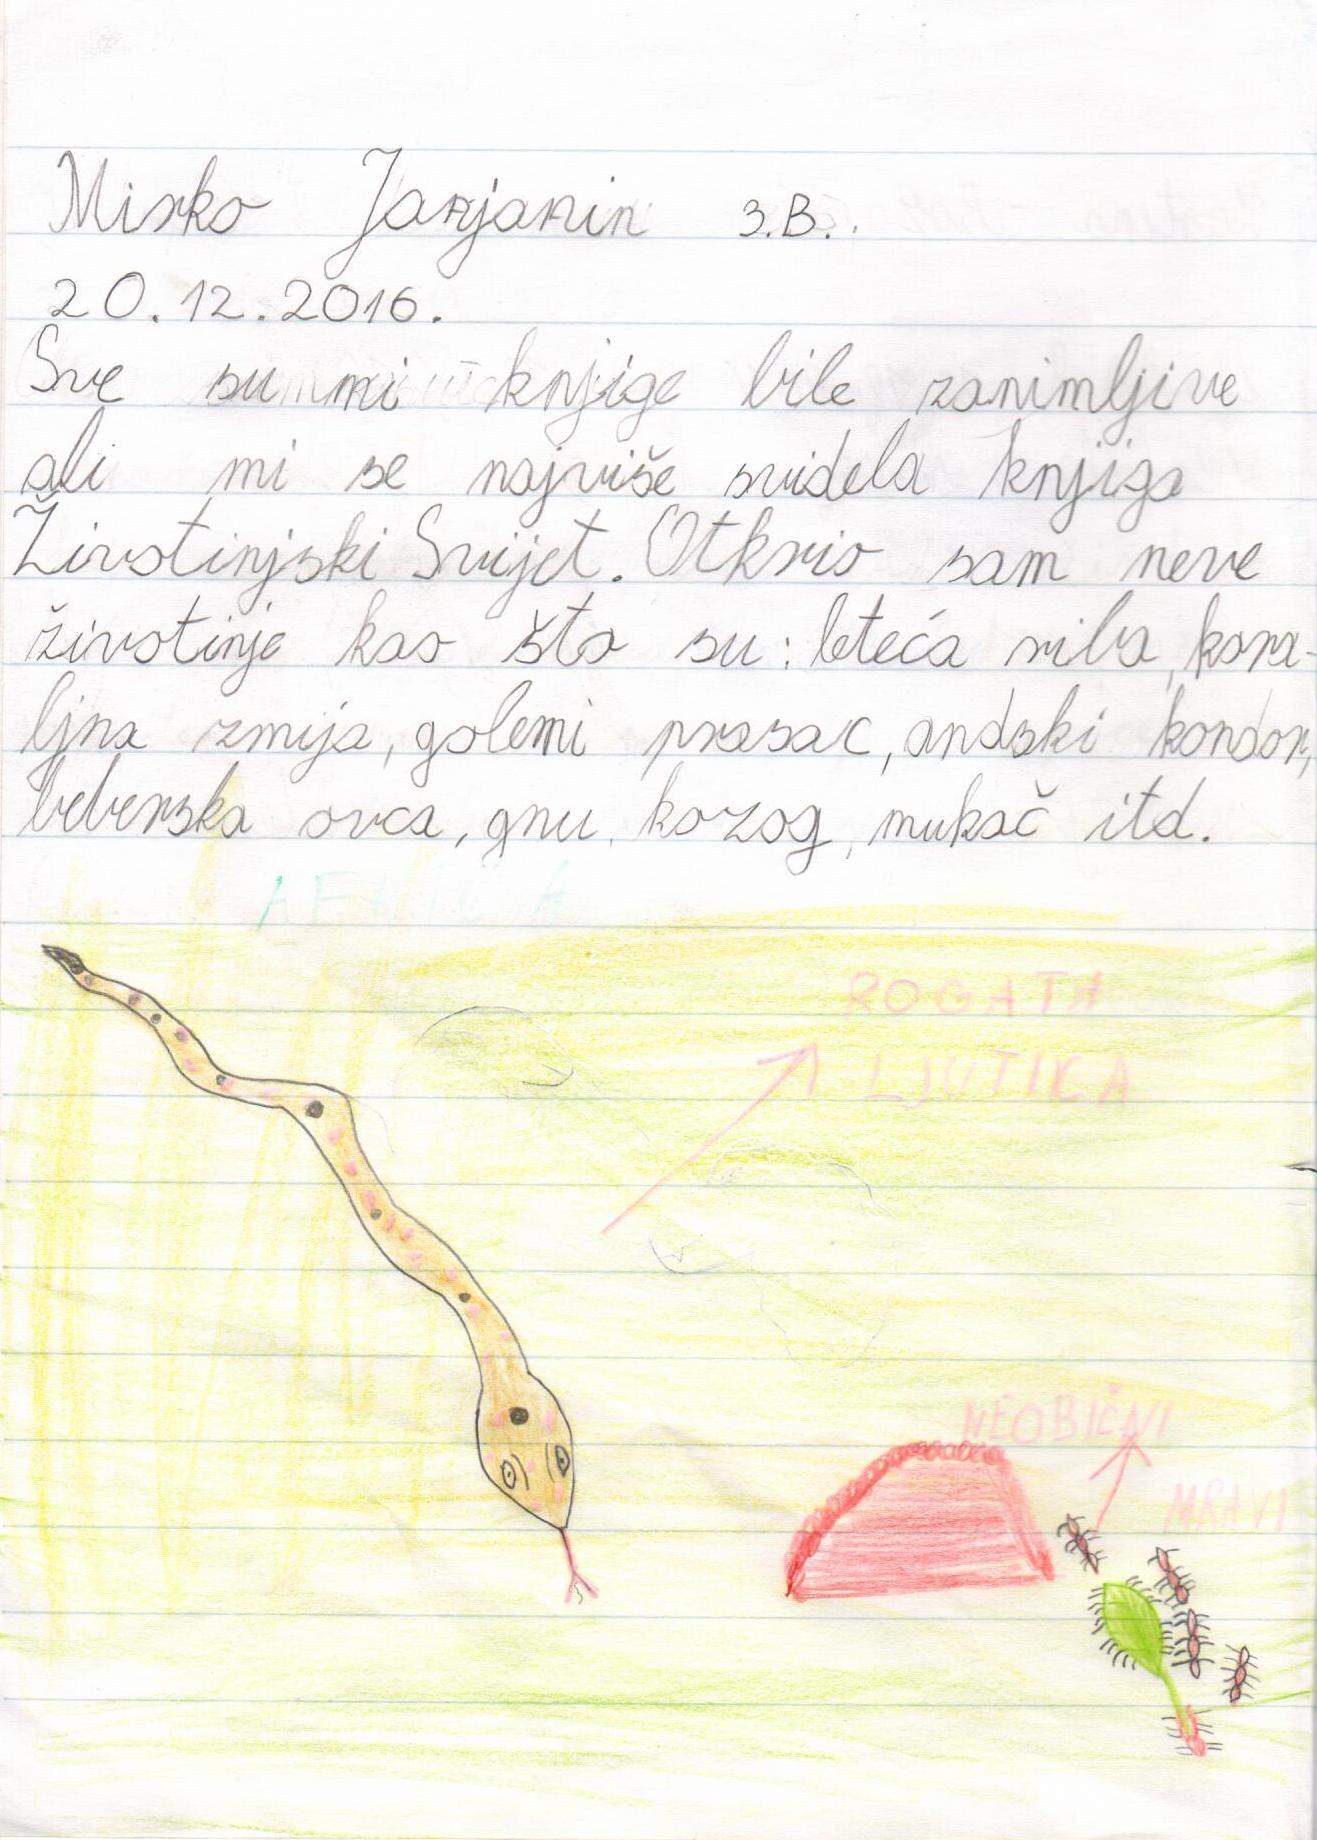 Mirko Janjanin 3.B.
20.12.2016.
Sve su mi knjige bile zanimljive
ali mi se najviše svidela knjiga
Životinjski Svijet. Otkrio sam neve
životinje kao što su: leteća riba, kora-
ljna zmija, golemi prasac, andski kondor,
beberska ovca, gnu, kozog, mukač itd.
AFRIKA
ROGATA
LJUTICA
NEOBIČNI
MRAVI